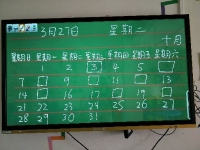 3月27日 星期二
十月
星期日 星期一 星期二 星期三 星期四 星期五 星期六
1 2 3 4 5
7 9 11 13
14 16 17 19
21 22 23 24 25 26 27
28 29 30 31